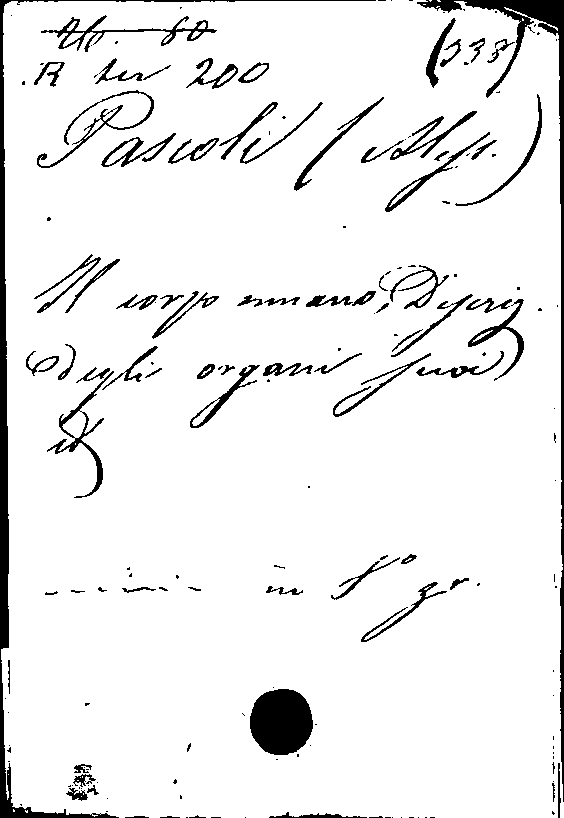 80
R ter 200 (338)
Pascoli (Aless.)
Il corpo umano, Descriz.
degli organi suoi
in 8º gr.